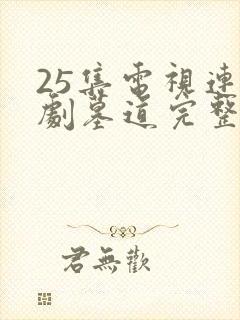 25集電視連
劇墓道完整
君無歡